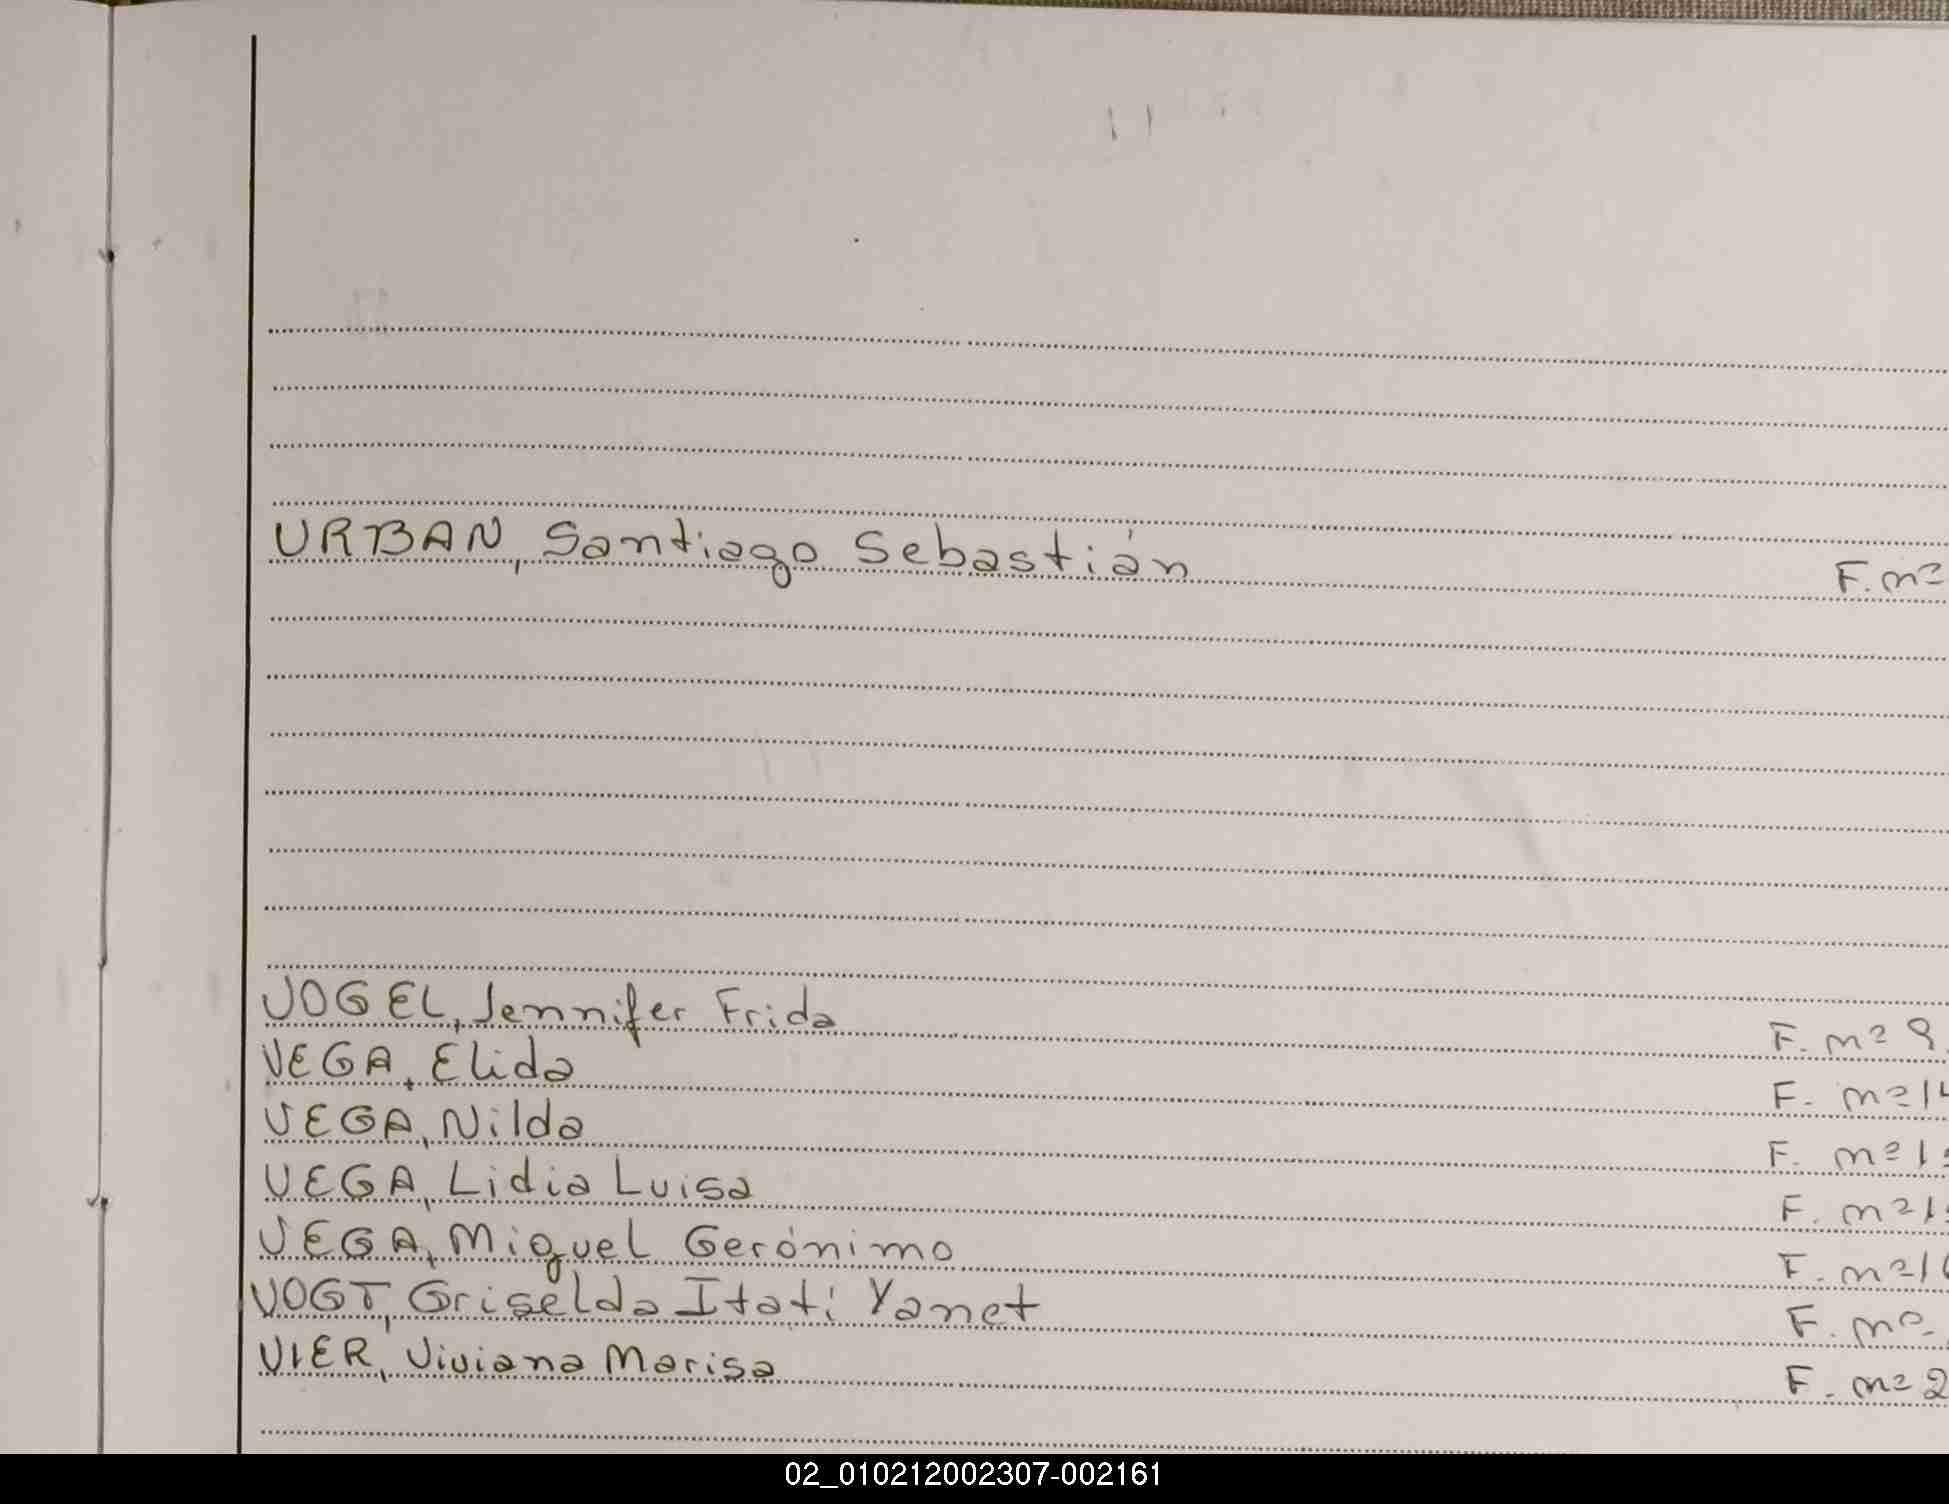 URBAN, Santiago Sebastián F. nº
VOGEL, Jennifer Frida F. nº 9
VEGA, Elida F. nº 14
VEGA, Nilda F. nº 1
VEGA, Lidia Luisa F. nº 1
VEGA, Miguel Gerónimo F. nº 1
VOGT, Griselda Itatí Yanet F. nº
VIER, Viviana Marisa F. nº 2
02_010212002307-002161